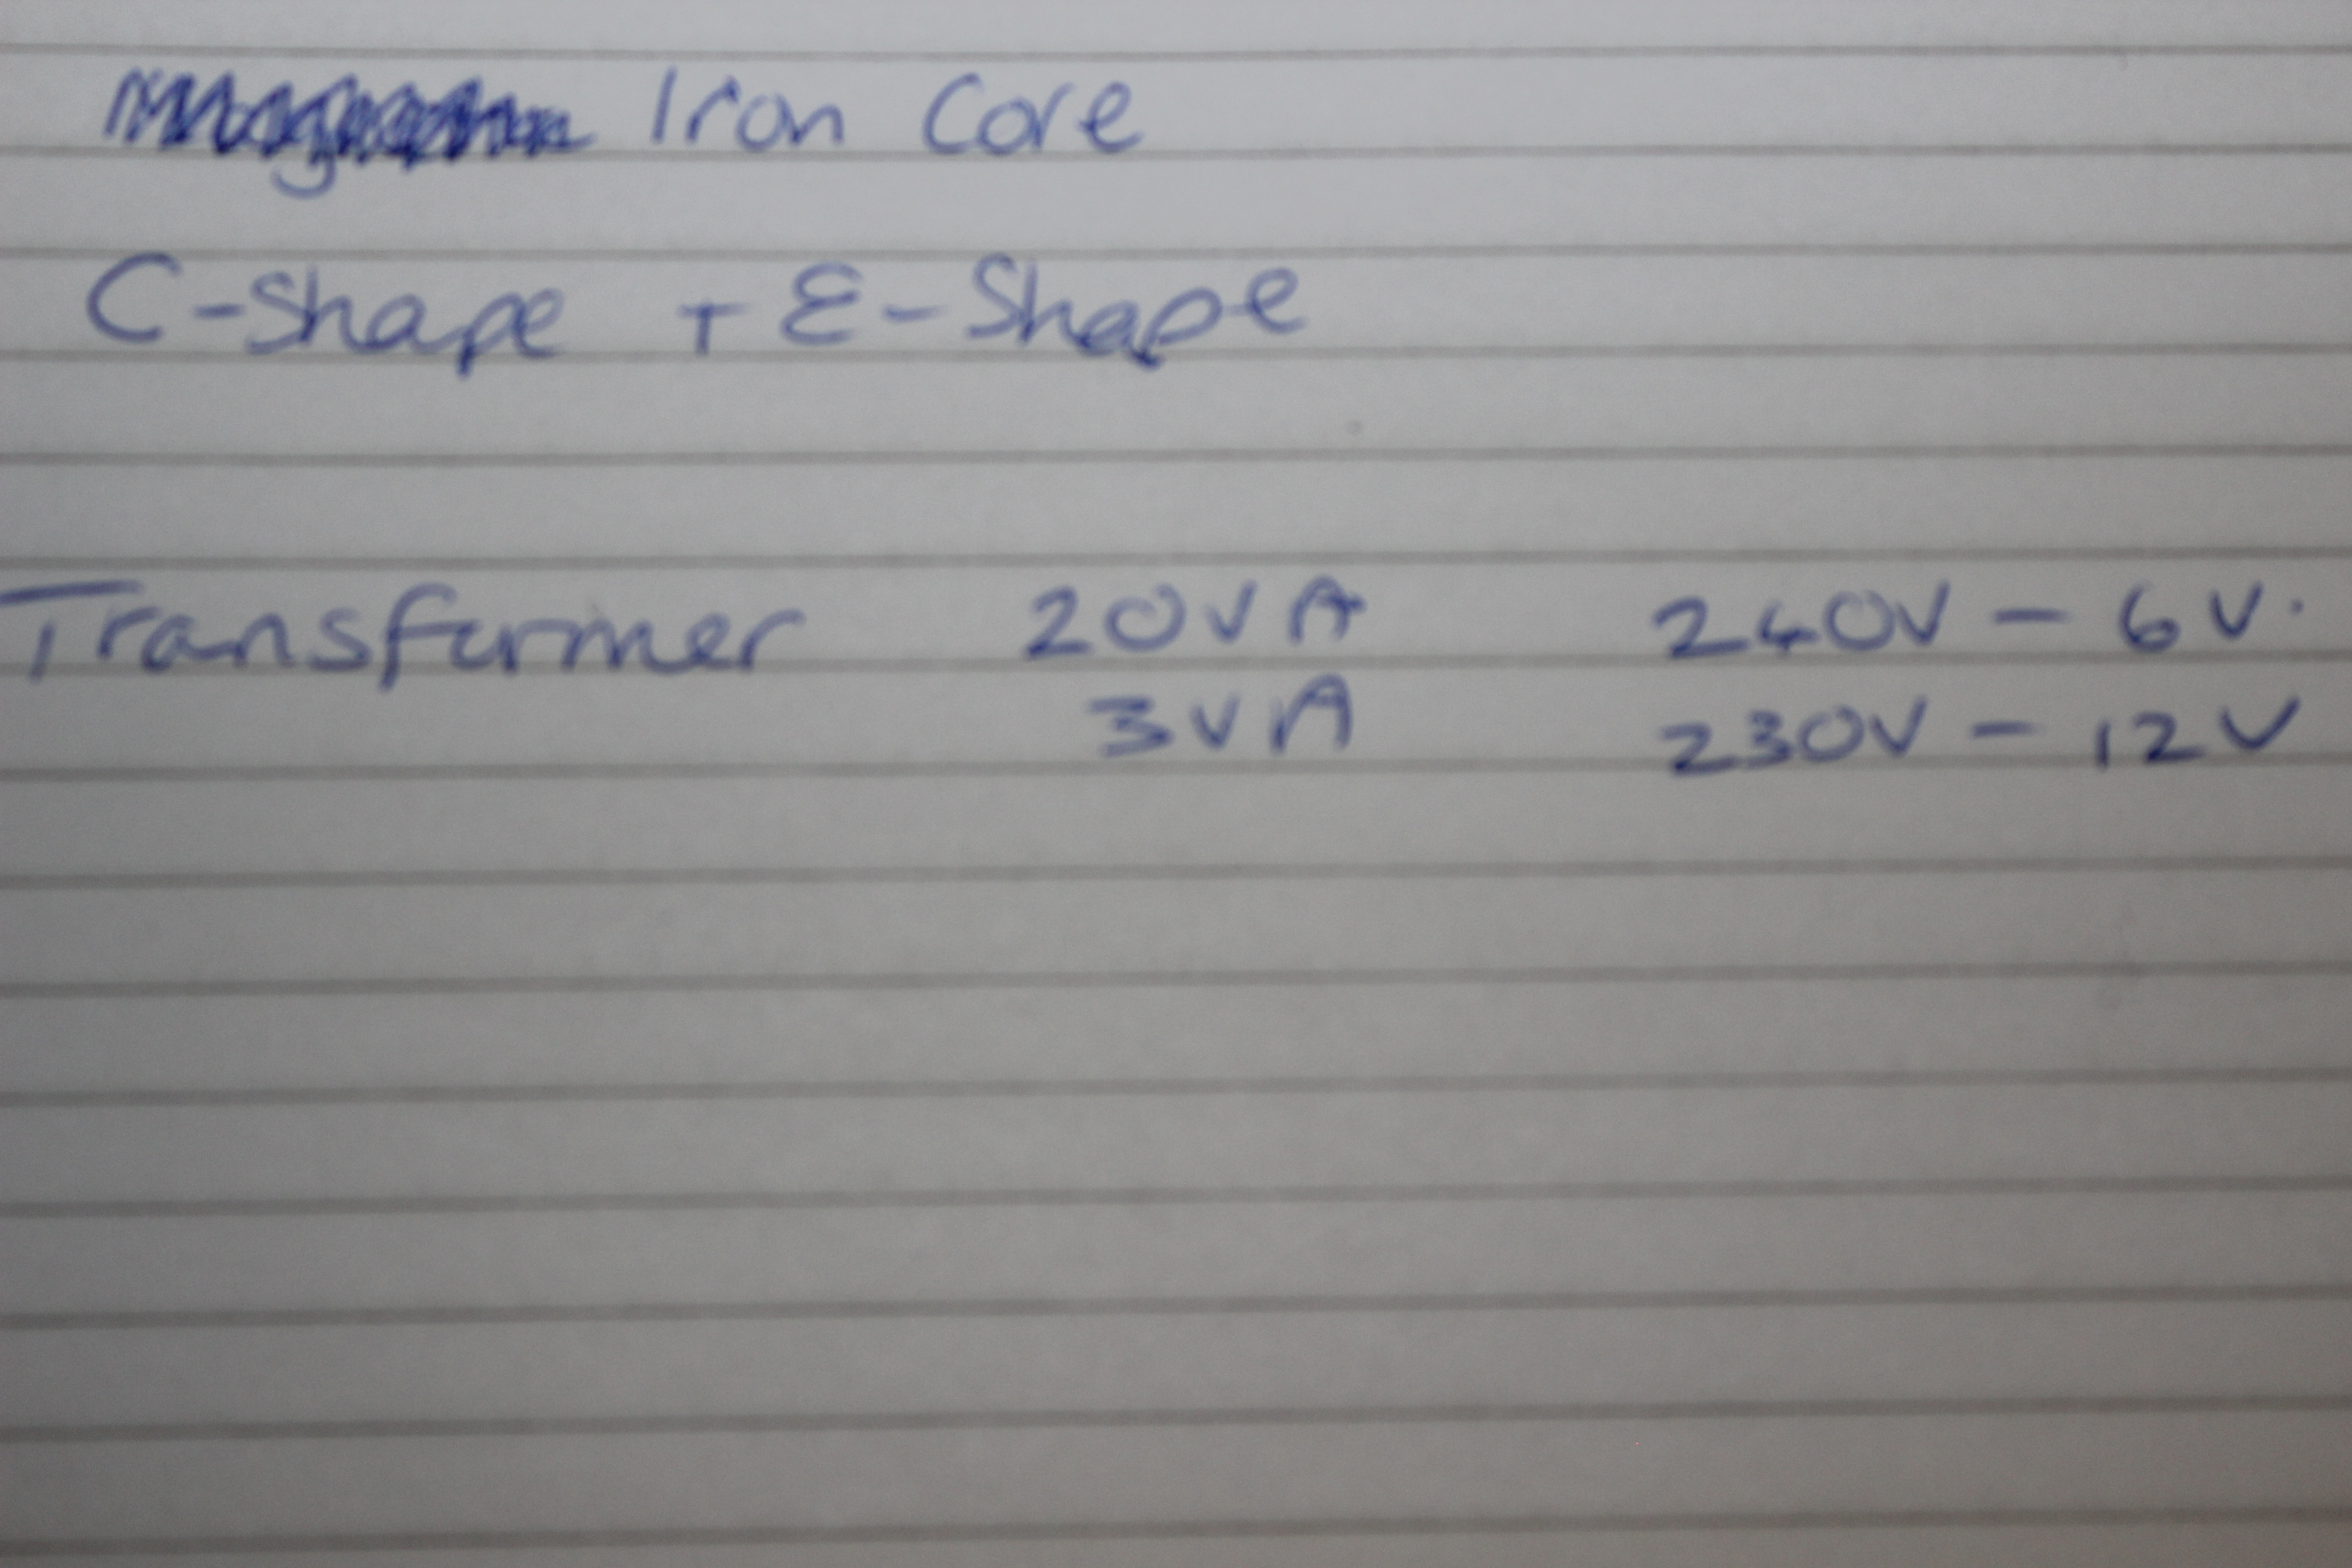 Iron Core
C-Shape + E-Shape
Transformer 20VA 240V - 6V.
3VA 230V - 12V